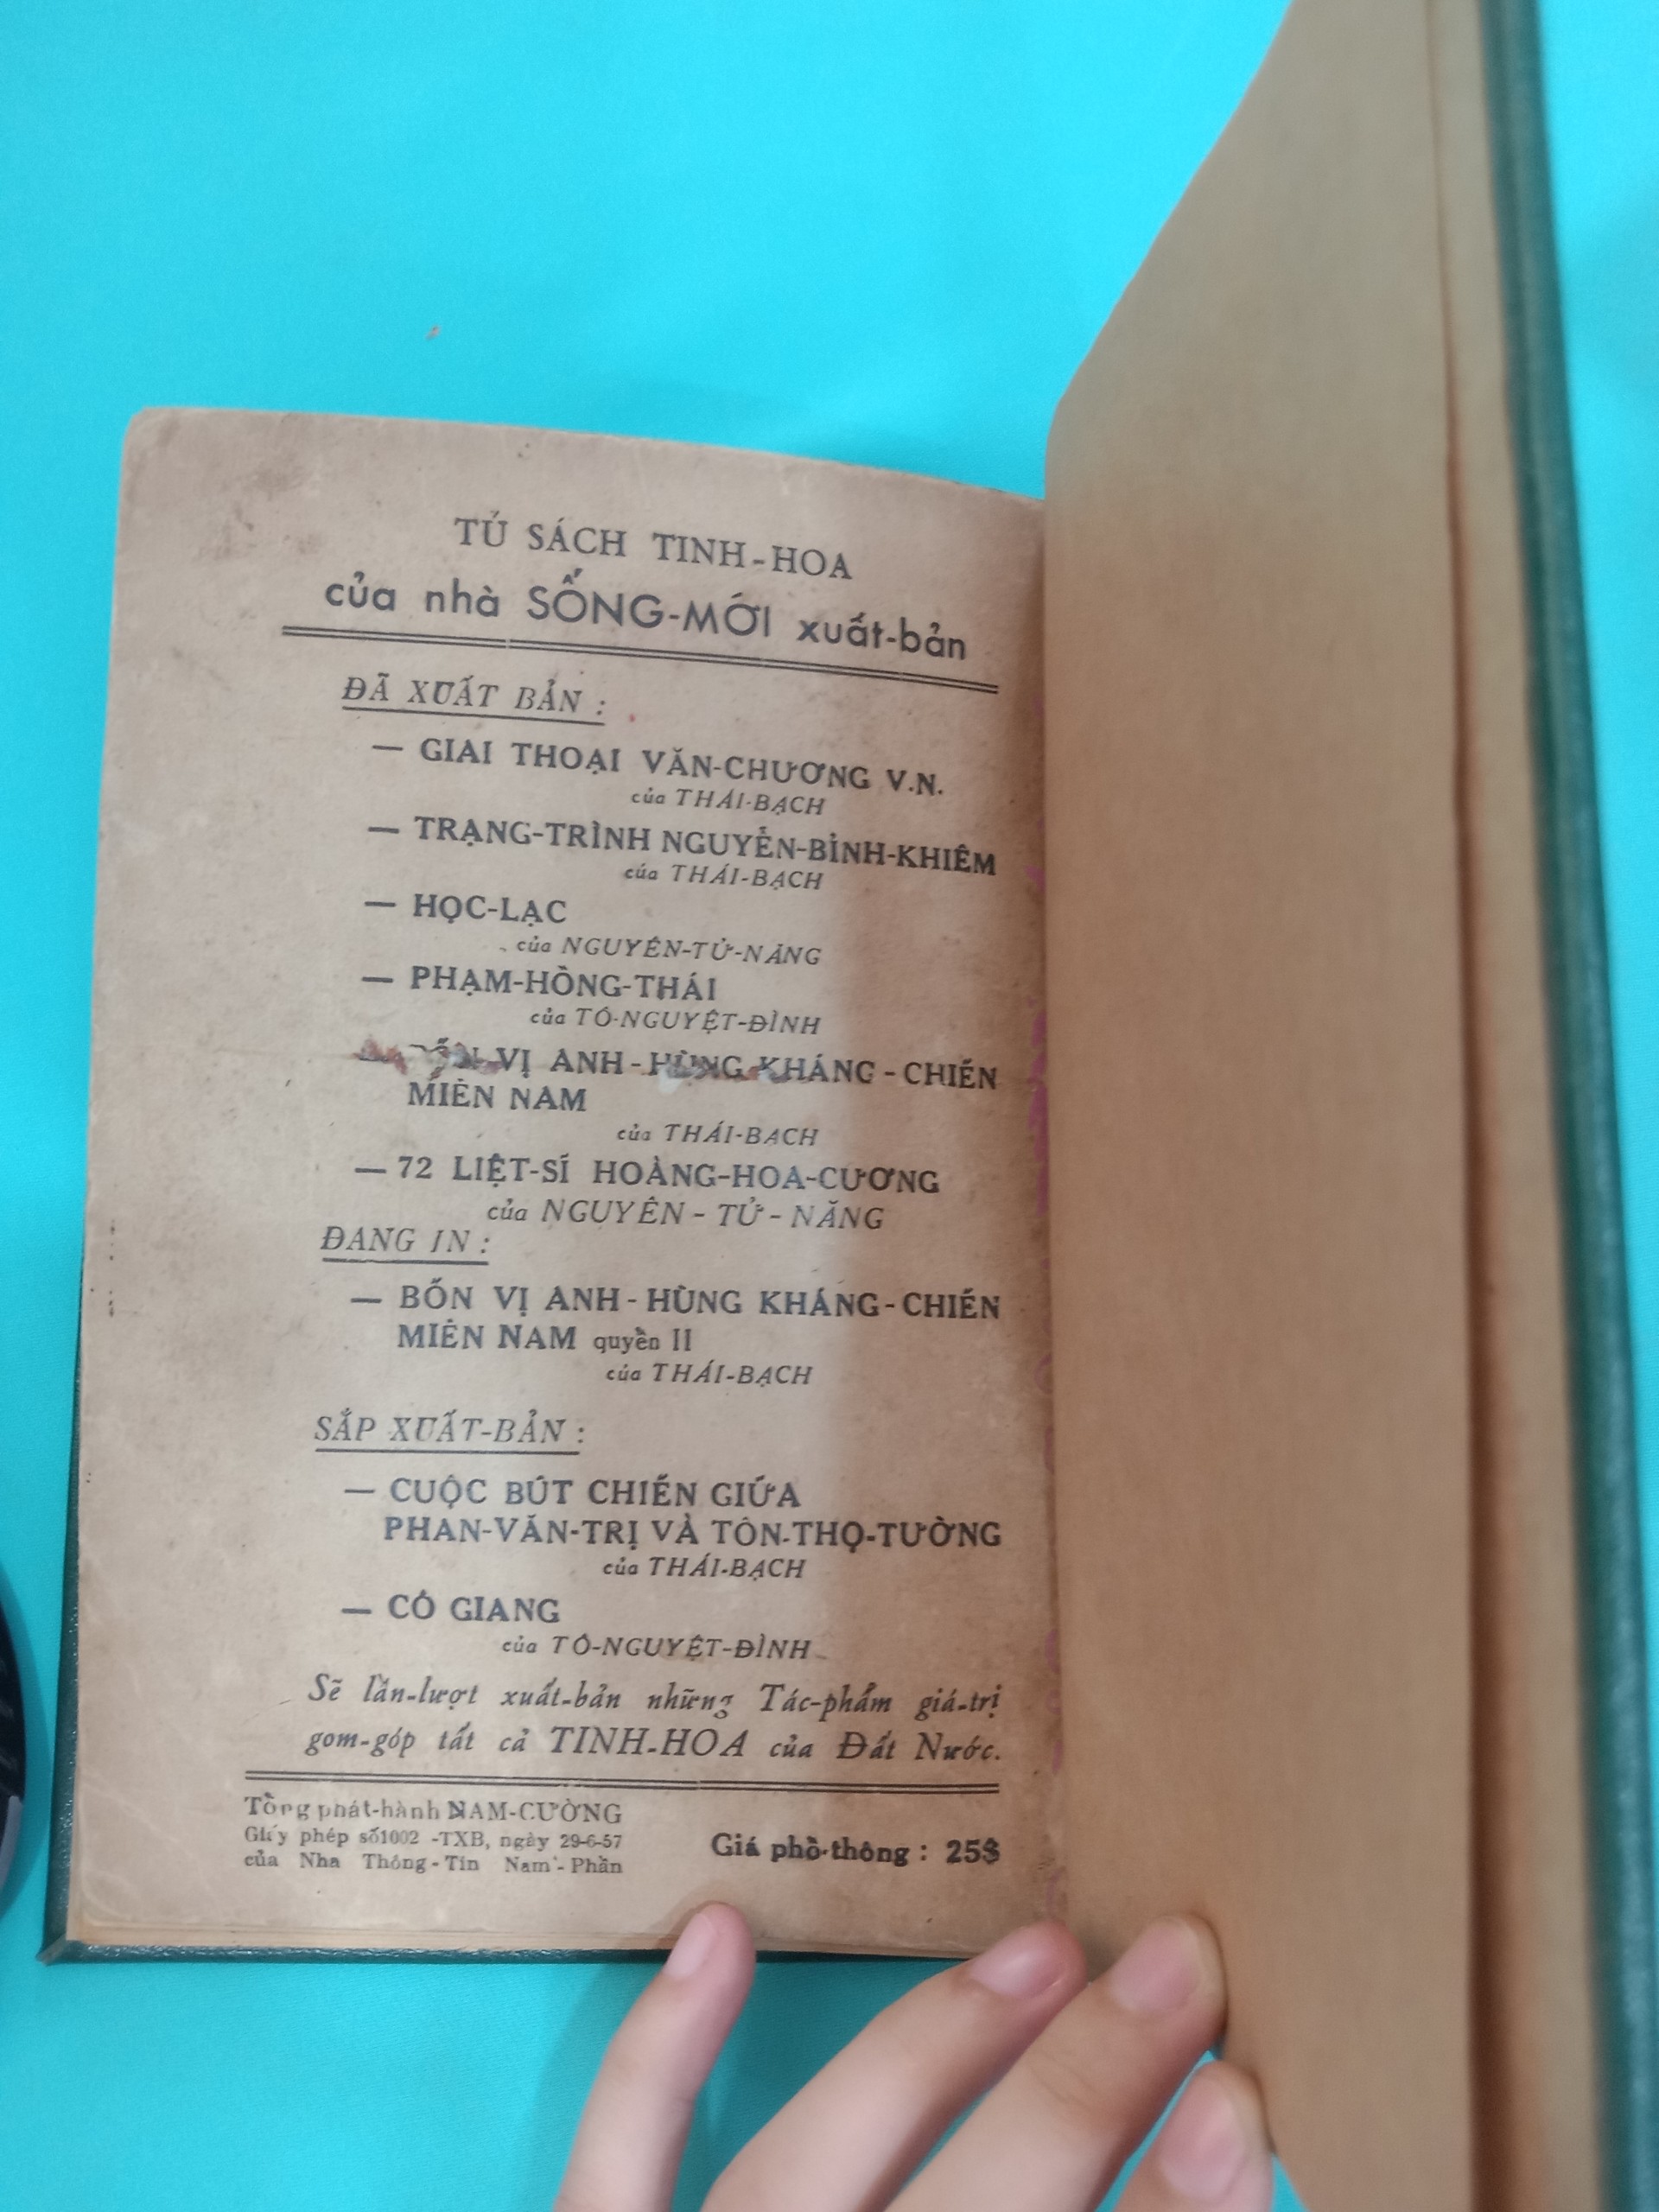 TỦ SÁCH TINH-HOA
của nhà SỐNG-MỚI xuất-bản
ĐÃ XUẤT BẢN :
— GIAI THOẠI VĂN-CHƯƠNG V.N.
của THÁI-BẠCH
— TRẠNG-TRÌNH NGUYỄN-BỈNH-KHIÊM
của THÁI-BẠCH
— HỌC-LẠC
của NGUYÊN-TỬ-NĂNG
— PHẠM-HỒNG-THÁI
của TÔ-NGUYỆT-ĐÌNH
VỊ ANH-HÙNG KHÁNG-CHIẾN
MIỀN NAM
của THÁI-BẠCH
— 72 LIỆT-SĨ HOÀNG-HOA-CƯƠNG
của NGUYÊN-TỬ-NĂNG
ĐANG IN :
— BỐN VỊ ANH-HÙNG KHÁNG-CHIẾN
MIỀN NAM quyển II
của THÁI-BẠCH
SẮP XUẤT-BẢN :
— CUỘC BÚT CHIẾN GIỮA
PHAN-VĂN-TRỊ VÀ TÔN-THỌ-TƯỜNG
của THÁI-BẠCH
— CÔ GIANG
của TÔ-NGUYỆT-ĐÌNH
Sẽ lần-lượt xuất-bản những Tác-phẩm giá-trị
gom-góp tất cả TINH-HOA của Đất Nước.
Tổng phát-hành NAM-CƯỜNG
Giấy phép số 1002 -TXB, ngày 29-6-57
của Nha Thông-Tin Nam-Phần
Giá phổ-thông : 25$